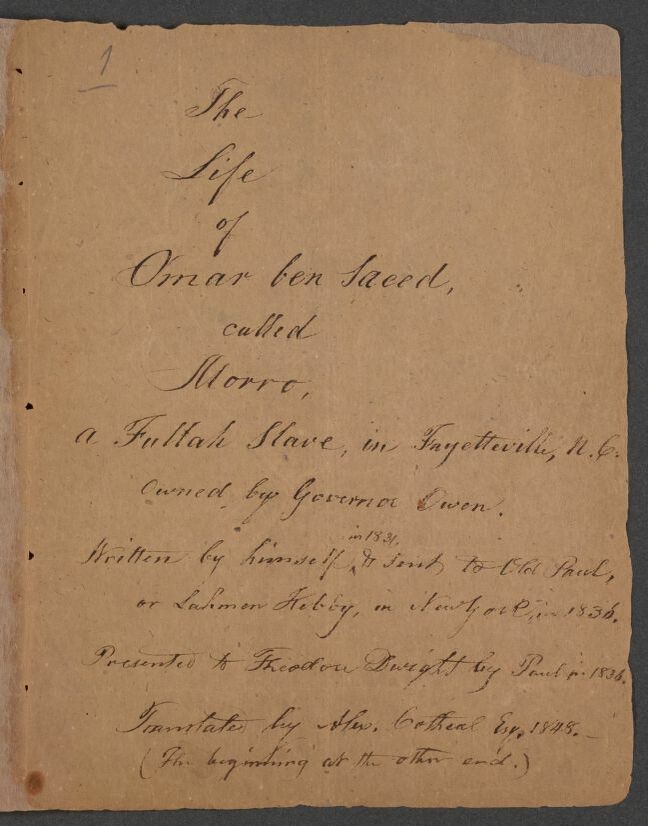 1
The
Life
of
Omar ben Saeed,
called
Morro,
a Fullah Slave, in Fayetteville, N.C.
owned by Governor Owen.
in 1831,
Written by himself, & sent to Old Paul,
or Lahmen Kebby, in New York, in 1836.
Presented to Theodore Dwight by Paul in 1836.
Translated by Alex. Cotheal Esq. 1848. –
(The beginning at the other end.)